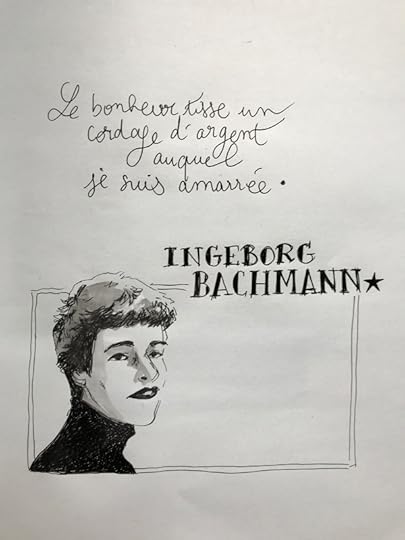 Le bonheur tisse un
cordage d'argent
auquel
je suis amarrée.
INGEBORG
BACHMANN